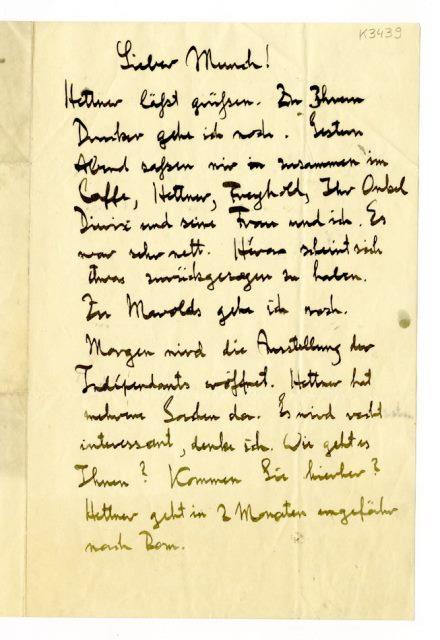 K3439
Lieber Munch!
Hettner läßt grüßen. Zu Ihrem
Drucker gehe ich noch. Gestern
Abend saßen wir in zusammen im
Caffe, Hettner, Freyhold, Ihr Onkel
Dirix und seine Frau und ich. Es
war sehr nett. scheint sich
etwas zurückgezogen zu haben.
Zu Marolds gehe ich noch.
Morgen wird die Ausstellung der
Indépendants eröffnet. Hettner hat
mehrere Sachen da. Es wird recht
interessant, denke ich. Wie geht es
Ihnen? Kommen Sie hierher?
Hettner geht in 2 Monaten ungefähr
nach Rom.